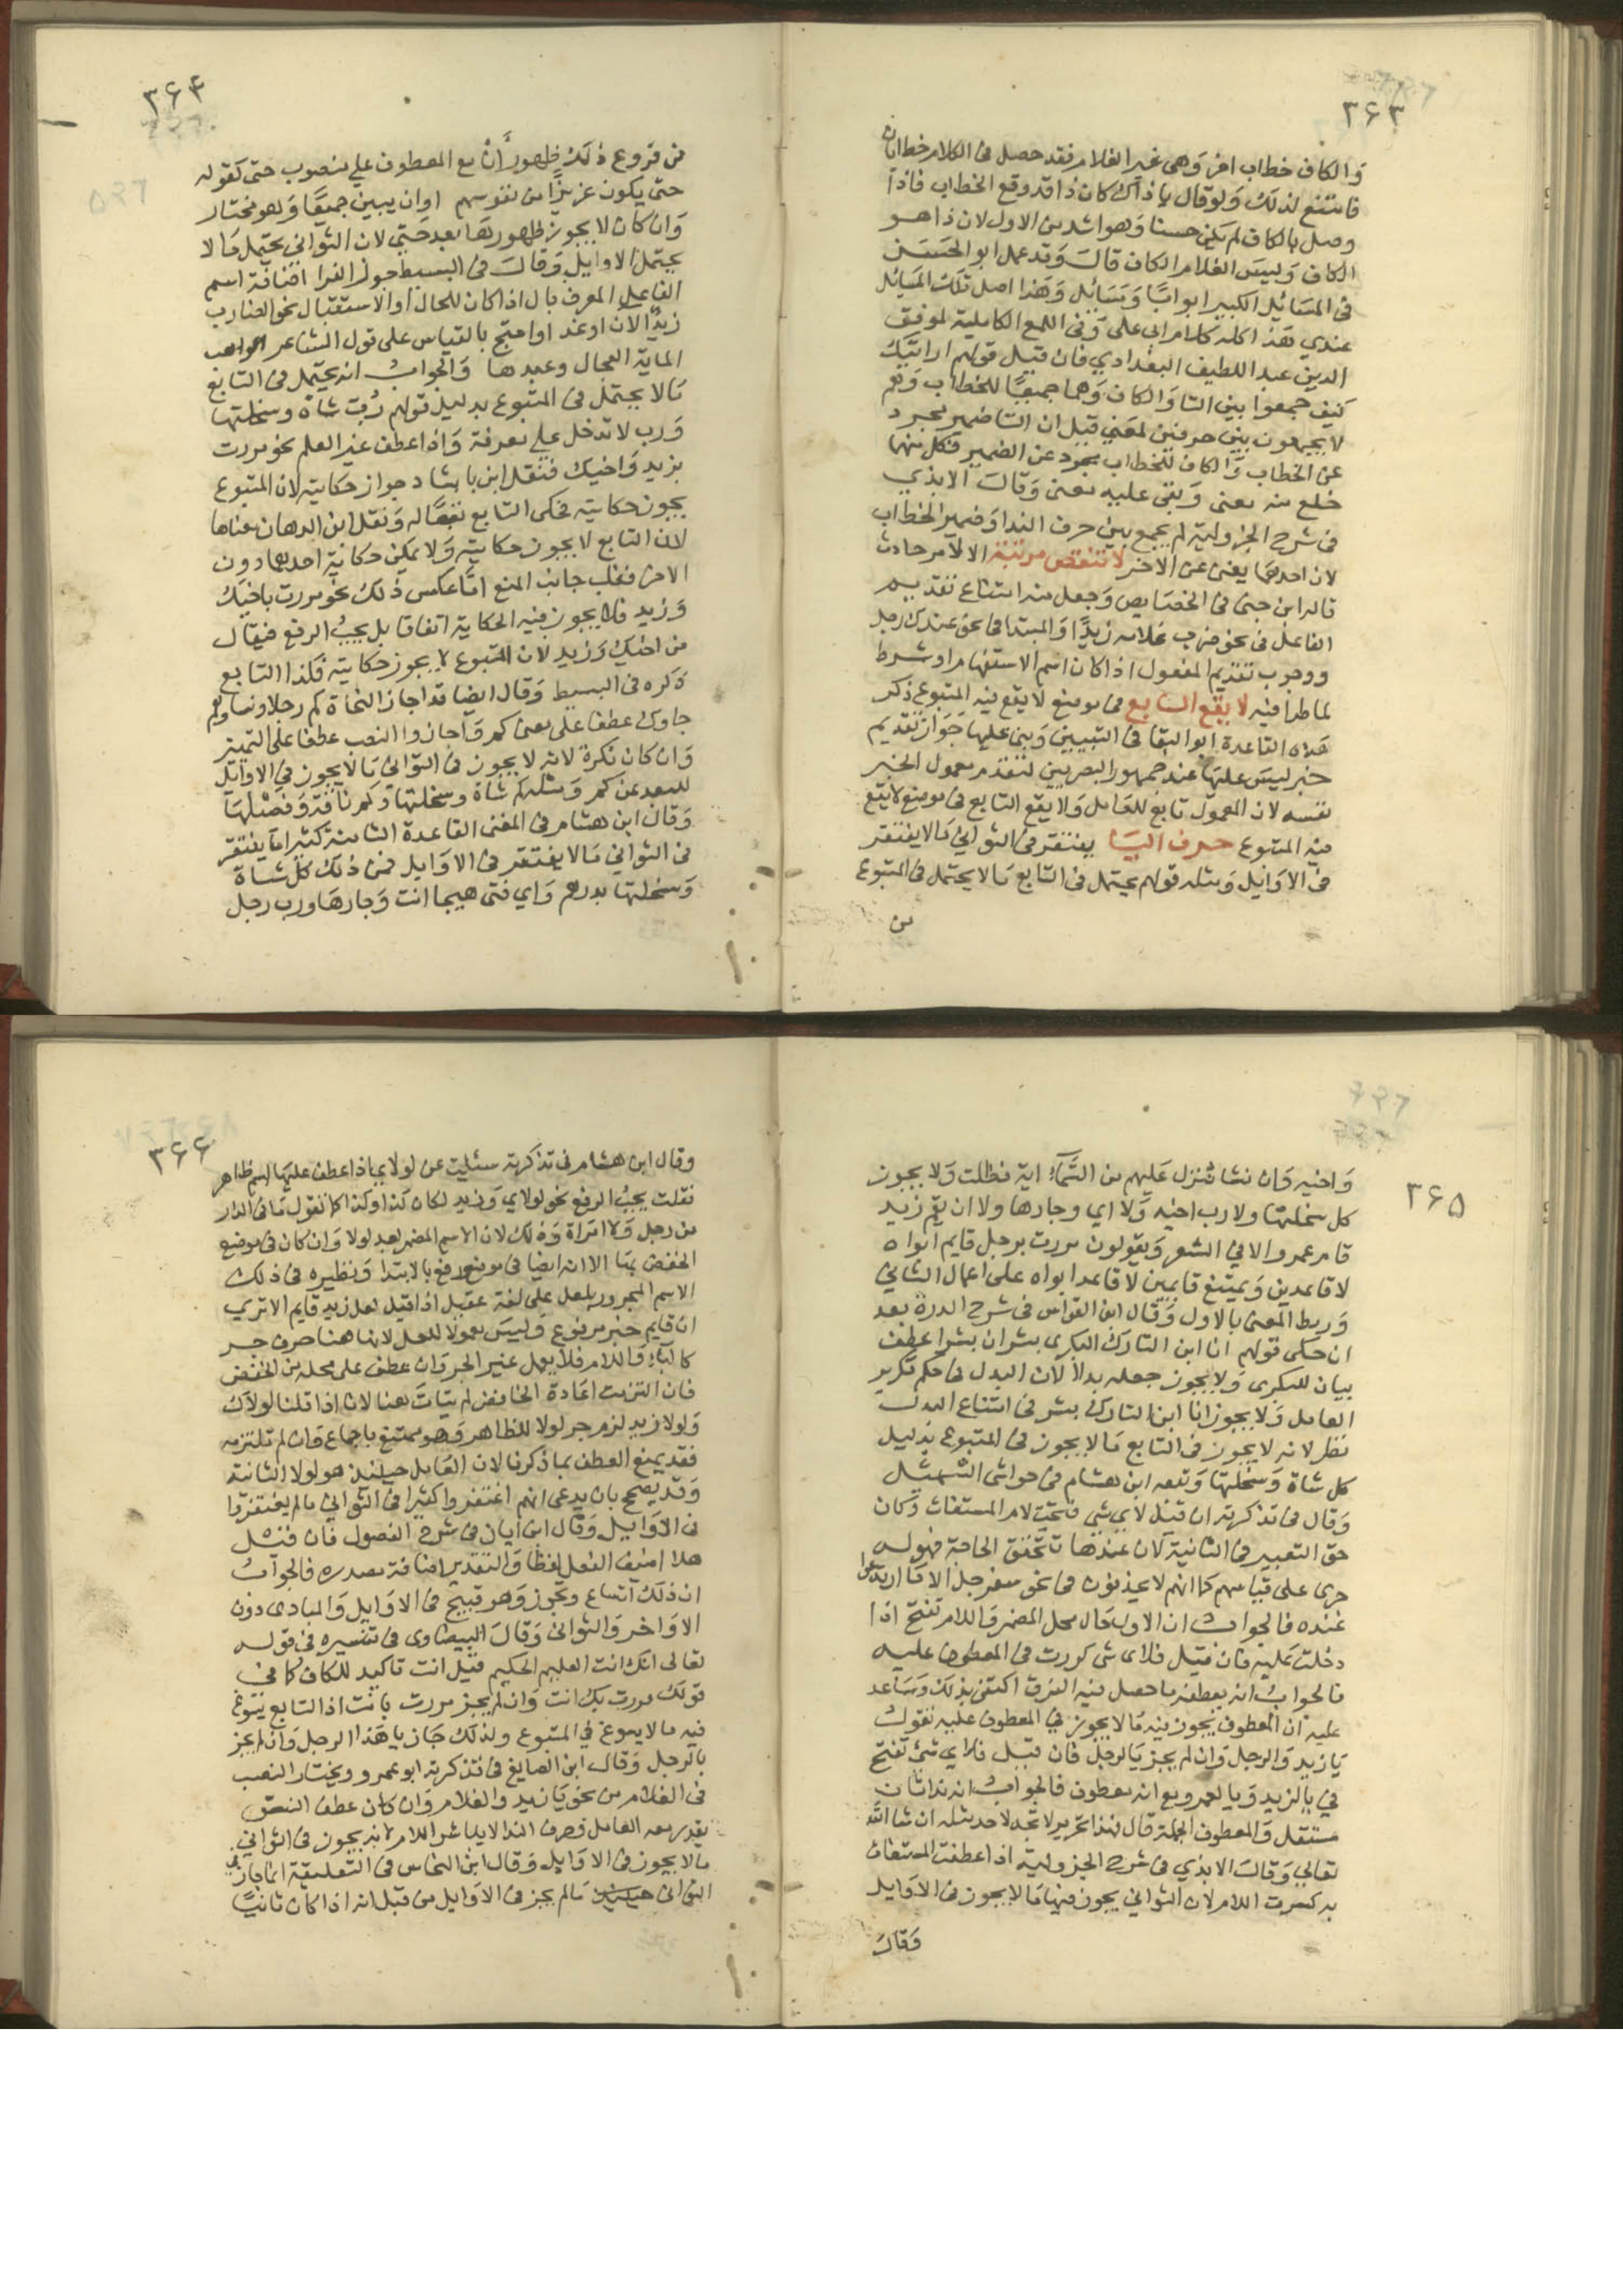 ٣۶٣
وَالكاف خطاب اخر وَهى غير الغلام فقد حصل فى الكلام خطابان
فامتنع لذلك وَلو قال يا ذاك كان ذا قد وقع الخطاب فاذا
وصل بالكاف لم يكن حسنا وَهو اشد من الاول لان ذا هو
الكاف وَليسَ الغلام الكاف قالَ وَقد عمل ابو الحَسَن
فى المسَائل الكبير ابوابًا وَمَسَائل وَهَذا اصل تلك المسَائل
عندي هَذا كله كلام ابى على وَفى اللمع الكاملية لموفق
الدين عبد اللطيف البغدادي فان قيل قولهم ارايتك
كيف جمعوا بين التا وَالكاف وَهما جميعًا للخطاب وَهم
لا يجمعون بين حرفين لمعنى قيل ان التا ضمير مجرد
عن الخطاب وَالكاف للخطاب مجرد عن الضمير فكل منهما
خلع منه معنى وَبقى عليه معنى وَقالَ الابذي
فى شرح الجزولية لم يجمع بين حرف الندا وَضمير الخطاب
لان احدهما يغنى عن الاخر لا تنقض مرتبة الا لامر حادث
قاله ابن جنى فى الخصَايص وَجعل منه امتناع تقديم
الفاعل فى نحو ضرب غلامه زيدًا وَالمبتدا فى نحو عندك رجل
ووجوب تقديم المفعول اذا كان اسم الاستفهام او شرط
لما طرا فيه لا يقع التابع فى موضع لا يقع فيه المتبوع ذكر
هَذه القاعدة ابو البقا فى التبيين وَبنى عليهَا جَوَاز تقديم
خبر ليسَ عليهَا عند جمهور البصريين لتقدم معمول الخبر
نفسه لان المعمول تابع للعَامل وَلا يقع التابع فى موضع لا يقع
فيه المتبوع حرف اليَا يغتفر فى الثوانى مَا لا يغتفر
فى الاوَايل وَمثله قولهم يحتمل فى التابع مَا لا يحتمل فى المتبوع
من
٣۶۴
من فروع ذلك ظهور أنْ مع المعطوف على منصوب حتى كقوله
حتى يكون عزيزًا من نفوسهم اوان يبين جميعًا وَهو مختار
وَان كان لا يجوز ظهورهَا بعد حتى لان الثوانى يحتمل مَا لا
يحتمل الاوايل وَقالَ فى البسيط جوز الفرا اضافة اسم
الفاعل المعرف بال اذا كان للحال او الاستقبال نحو الضارب
زيدٍ الان او غدا واحتج بالقياس على قول الشاعر الواهب
الماية الهجان وعبدها وَالجوابُ انه يحتمل فى التابع
مَا لا يحتمل فى المتبوع بدليل قولهم رُب شاة وسخلتها
وَرب لا تدخل على معرفة وَاذا عطف غير العلم نحو مررت
بزيد وَاخيك فنقل ابن بابشاد جواز حكايته لان المتبوع
يجوز حكايته فحكى التابع تبعًا له وَنقل ابن الدهان منعها
لان التابع لا يجوز حكايته وَلا يمكن حكاية احدهما دون
الاخر فغلب جانب المنع امَّا عكس ذلك نحو مررت باخيك
وَزيد فلا يجوز فيه الحكاية اتفاقا بل يجبُ الرفع فيقال
من اخيك وَزيد لان المتبوع لا يجوز حكايته فكذا التابع
ذكره فى البسيط وَقال ايضا قد اجاز النحاة كم رجلا ونساوهم
جاوك عطفا على معنى كم وَاجازوا النصب عطفا على التمييز
وَان كان نكرة لانه لا يجوز فى الثوانى مَا لا يجوز فى الاوايل
للبعد عن كم وَمثله كم شاة وسخلتها وَكم ناقة وَفصْلهَا
وَقال ابن هشام فى المغنى القاعدة الثامنة كثيرا مَا يغتفر
فى الثوانى مَا لا يغتفر فى الاوَايل فمن ذلك كل شاة
وَسخلتها بدرهم وَاي فتى هيجا انت وَجارهَا ورب رجل
٣۶۵
وَاخيه وَان نشا ننزل عَليهم من السَّمآء اية فظلت وَلا يجوز
كل سخلتها ولا رب اخيه وَلا اي وجارها ولا ان يقم زيد
قام عمرو الا فى الشعر وَيقولون مررت برجل قايم ابواه
لا قاعدين وَيمتنع قايمين لا قاعد ابواه على اعمال الثانى
وَربط المعنى بالاول وَقال ابن القواس فى شرح الدرة بعد
ان حكى قولهم انا ابن التارك البكرى بشر ان بشرا عطف
بيان للبكرى وَلا يجوز جعله بدلاً لان البدل فى حكم تكرير
العامل وَلا يجوز انا ابن التارك بشر فى امتناع البدل
نظر لانه لا يجوز فى التابع مَا لا يجوز فى المتبوع بدليل
كل شاة وَسخلتها وَتبعه ابن هشام فى حواشى التسهيل
وَقال فى تذكرته ان قيل لاي شي فتحت لام المستغاث وَكان
حق التغيير فى الثانية لان عندها تتحقق الحاجة فهو له
جرى على قياسهم كما انهم لا يحذفون فى نحو سفرجل الا مَا ارتدعوا
عنده فالجوابُ ان الاول حَال محل المضمر وَاللام تفتح اذا
دخلت عَليه فان قيل فلاى شى كررت فى المعطوف عليه
فالجوابُ انه بعطفه ما حصل فيه الفرق اكتفى بذلك وَسَاعد
عليه ان المعطوف يجوز فيه مَا لا يجوز فى المعطوف عليه تقول
يَا زيد وَالرجل وَان لم يجز يَا لرجل فان قيل فلاي شئ تفتح
في يا لزيد وَيا لعمرو مع انه معطوف فالجوابُ انه ندا ثان
مستقل وَالمعطوف الجملة قال فهذا تحرير لا تجد لاحد مثله ان شا الله
تعالى وَقالَ الابذي فى شرح الجزولية اذا عطفت المستغاث
به كسرت اللام لان الثوانى يجوز فيهَا مَا لا يجوز فى الاوَايل
وَقال
٣۶۶
وقال ابن هشام فى تذكرته سئلت عن لولاى اذا عطف عليهَا اسم ظاهر
فقلت يجبُ الرفع نحو لولاي وَزيد لكان كذا وكذا كما تقول مَا فى الدار
من رجل وَلا امراة وَذلك لان الاسم المضمر بعد لولا وَان كان فى موضع
الخفض بهَا الا انه ايضا فى موضع رفع بالابتدا وَنظيره فى ذلك
الاسم المجرور بلعل على لغة عقيل اذا قيل لعل زيد قايم الا ترى
ان قايم خبر مرفوع وَليسَ معمولا للعل لانها هنا حرف جر
كالبآء وَاللام فلا يعمل غير الجر وَان عطف على محله من الخفض
فان التزمت اعَادة الخافض لم يتاتَ هنا لانا اذا قلنا لولاك
وَلولا زيد لزم جر لولا للظاهر وَهو ممتنع باجماع وَان لم تلتزمه
فقد يمنع العطف بما ذكرنا لان العَامل حينئذ هو لولا الثانية
وَقد يصحح بان يدعى انهم اغتفروا كثيرا فى الثوانى ما لم يغتفروا
فى الاوَايل وَقال ابن ايان فى شرح الفصول فان قيل
هلا اضيف الفعل لفظا وَالتقدير اضافة مصدره فالجوابُ
ان ذلك اتساع وتجوز وَهو قبيح فى الاوايل وَالمبادى دون
الاوَاخر وَالثوانى وَقالَ البيضاوى فى تفسيره فى قوله
تعالى انك انت العليم الحكيم قيل انت تاكيد للكاف كما فى
قولك مررت بك انت وَان لم يجز مررت بانت اذ التابع يسوغ
فيه ما لا يسوغ في المتبوع ولذلك جَاز يا هَذا الرجل وَان لم يجز
يا لرجل وَقال ابن الصايغ فى تذكرته ابو عمرو ويختار النصب
فى الغلام من نحو يَا زيد والغلام وَان كان عطف النسق
يقدر معه العامل وحرف الندا لا يباشر اللام لانه يجوز فى الثوانى
مالا يجوز فى الاوَايل وَقال ابن النحاس فى التعليقة انما جاز فى
الثوانى حينئذ مَا لم يجز فى الاوَايل من قبل انه اذا كان ثانيًا